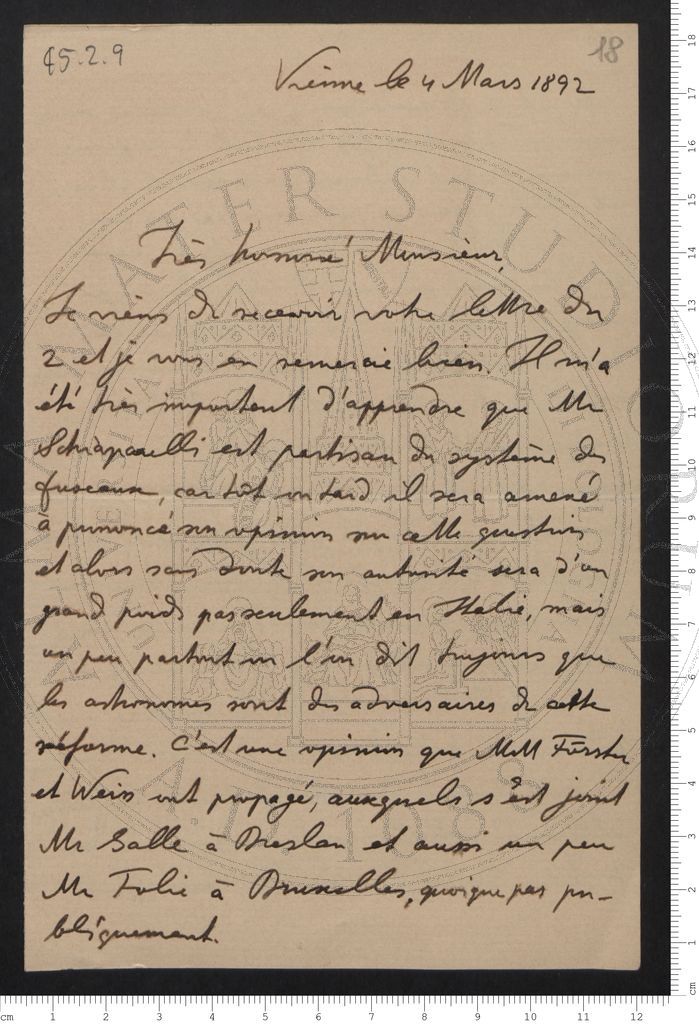 45.2.9
18
Vienne le 4 Mars 1892
Très honoré Monsieur,
Je viens de recevoir votre lettre du
2 et je vous en remercie bien. Il m'a
été très important d'apprendre que Mr
Schiaparelli est partisan du système des
fuseaux, car tôt ou tard il sera amené
à prononcé son opinion sur cette question
et alors sans doute son autorité sera d'un
grand poids pas seulement en Italie, mais
un peu partout où l'on dit toujours que
les astronomes sont des adversaires de cette
réforme. C'est une opinion que MrM Förster
et Weiss ont propagé, auxquels s'est joint
Mr Galle à Breslau et aussi un peu
Mr Folie à Bruxelles, quoique pas pu-
bliquement.
ALMA MATER STUDIORUM
A.D. 1088
cm 1 2 3 4 5 6 7 8 9 10 11 12
18
17
16
15
14
13
12
11
10
9
8
7
6
5
4
3
2
1
cm